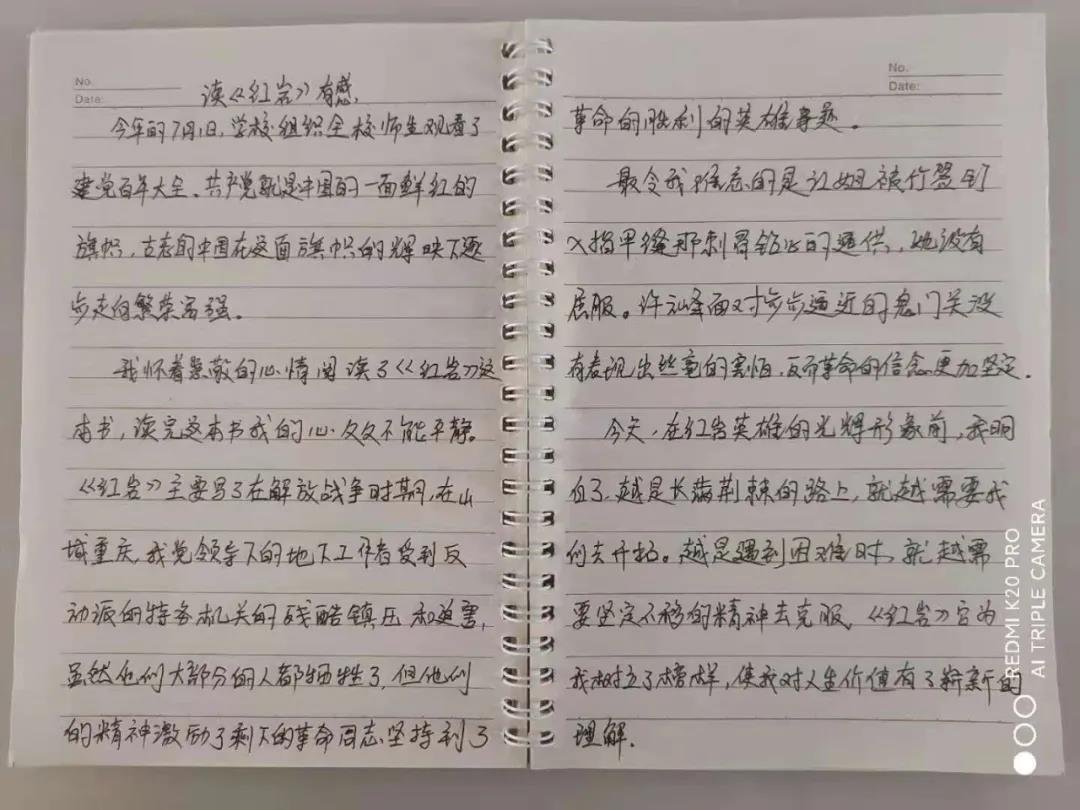 No.
Date:
读《红岩》有感
今年的7月1日,学校组织全校师生观看了
建党百年大会、共产党就是中国的一面鲜红的
旗帜,古老的中国在这面旗帜的辉映下逐
步走向繁荣富强。
我怀着崇敬的心情阅读了《红岩》这
本书,读完这本书我的心久久不能平静。
《红岩》主要写了在解放战争时期,在山
城重庆,我党领导下的地下工作者受到反
动派的特务机关的残酷镇压和迫害,
虽然他们大部分的人都牺牲了,但他们
的精神激励了剩下的革命同志坚持到了
No.
Date:
革命的胜利的英雄事迹。
最令我难忘的是江姐被竹签钉
入指甲缝那刺骨铭心的逼供,她没有
屈服。许云峰面对步步逼近的鬼门关没
有表现出丝毫的害怕,反而革命的信念更加坚定.
今天,在红岩英雄的光辉形象前,我明
白了,越是长满荆棘的路上,就越需要我
们去开拓。越是遇到困难时,就越需
要坚定不移的精神去克服、《红岩》它为
我树立了榜样,使我对人生价值有了崭新的
理解.
REDMI K20 PRO
AI TRIPLE CAMERA